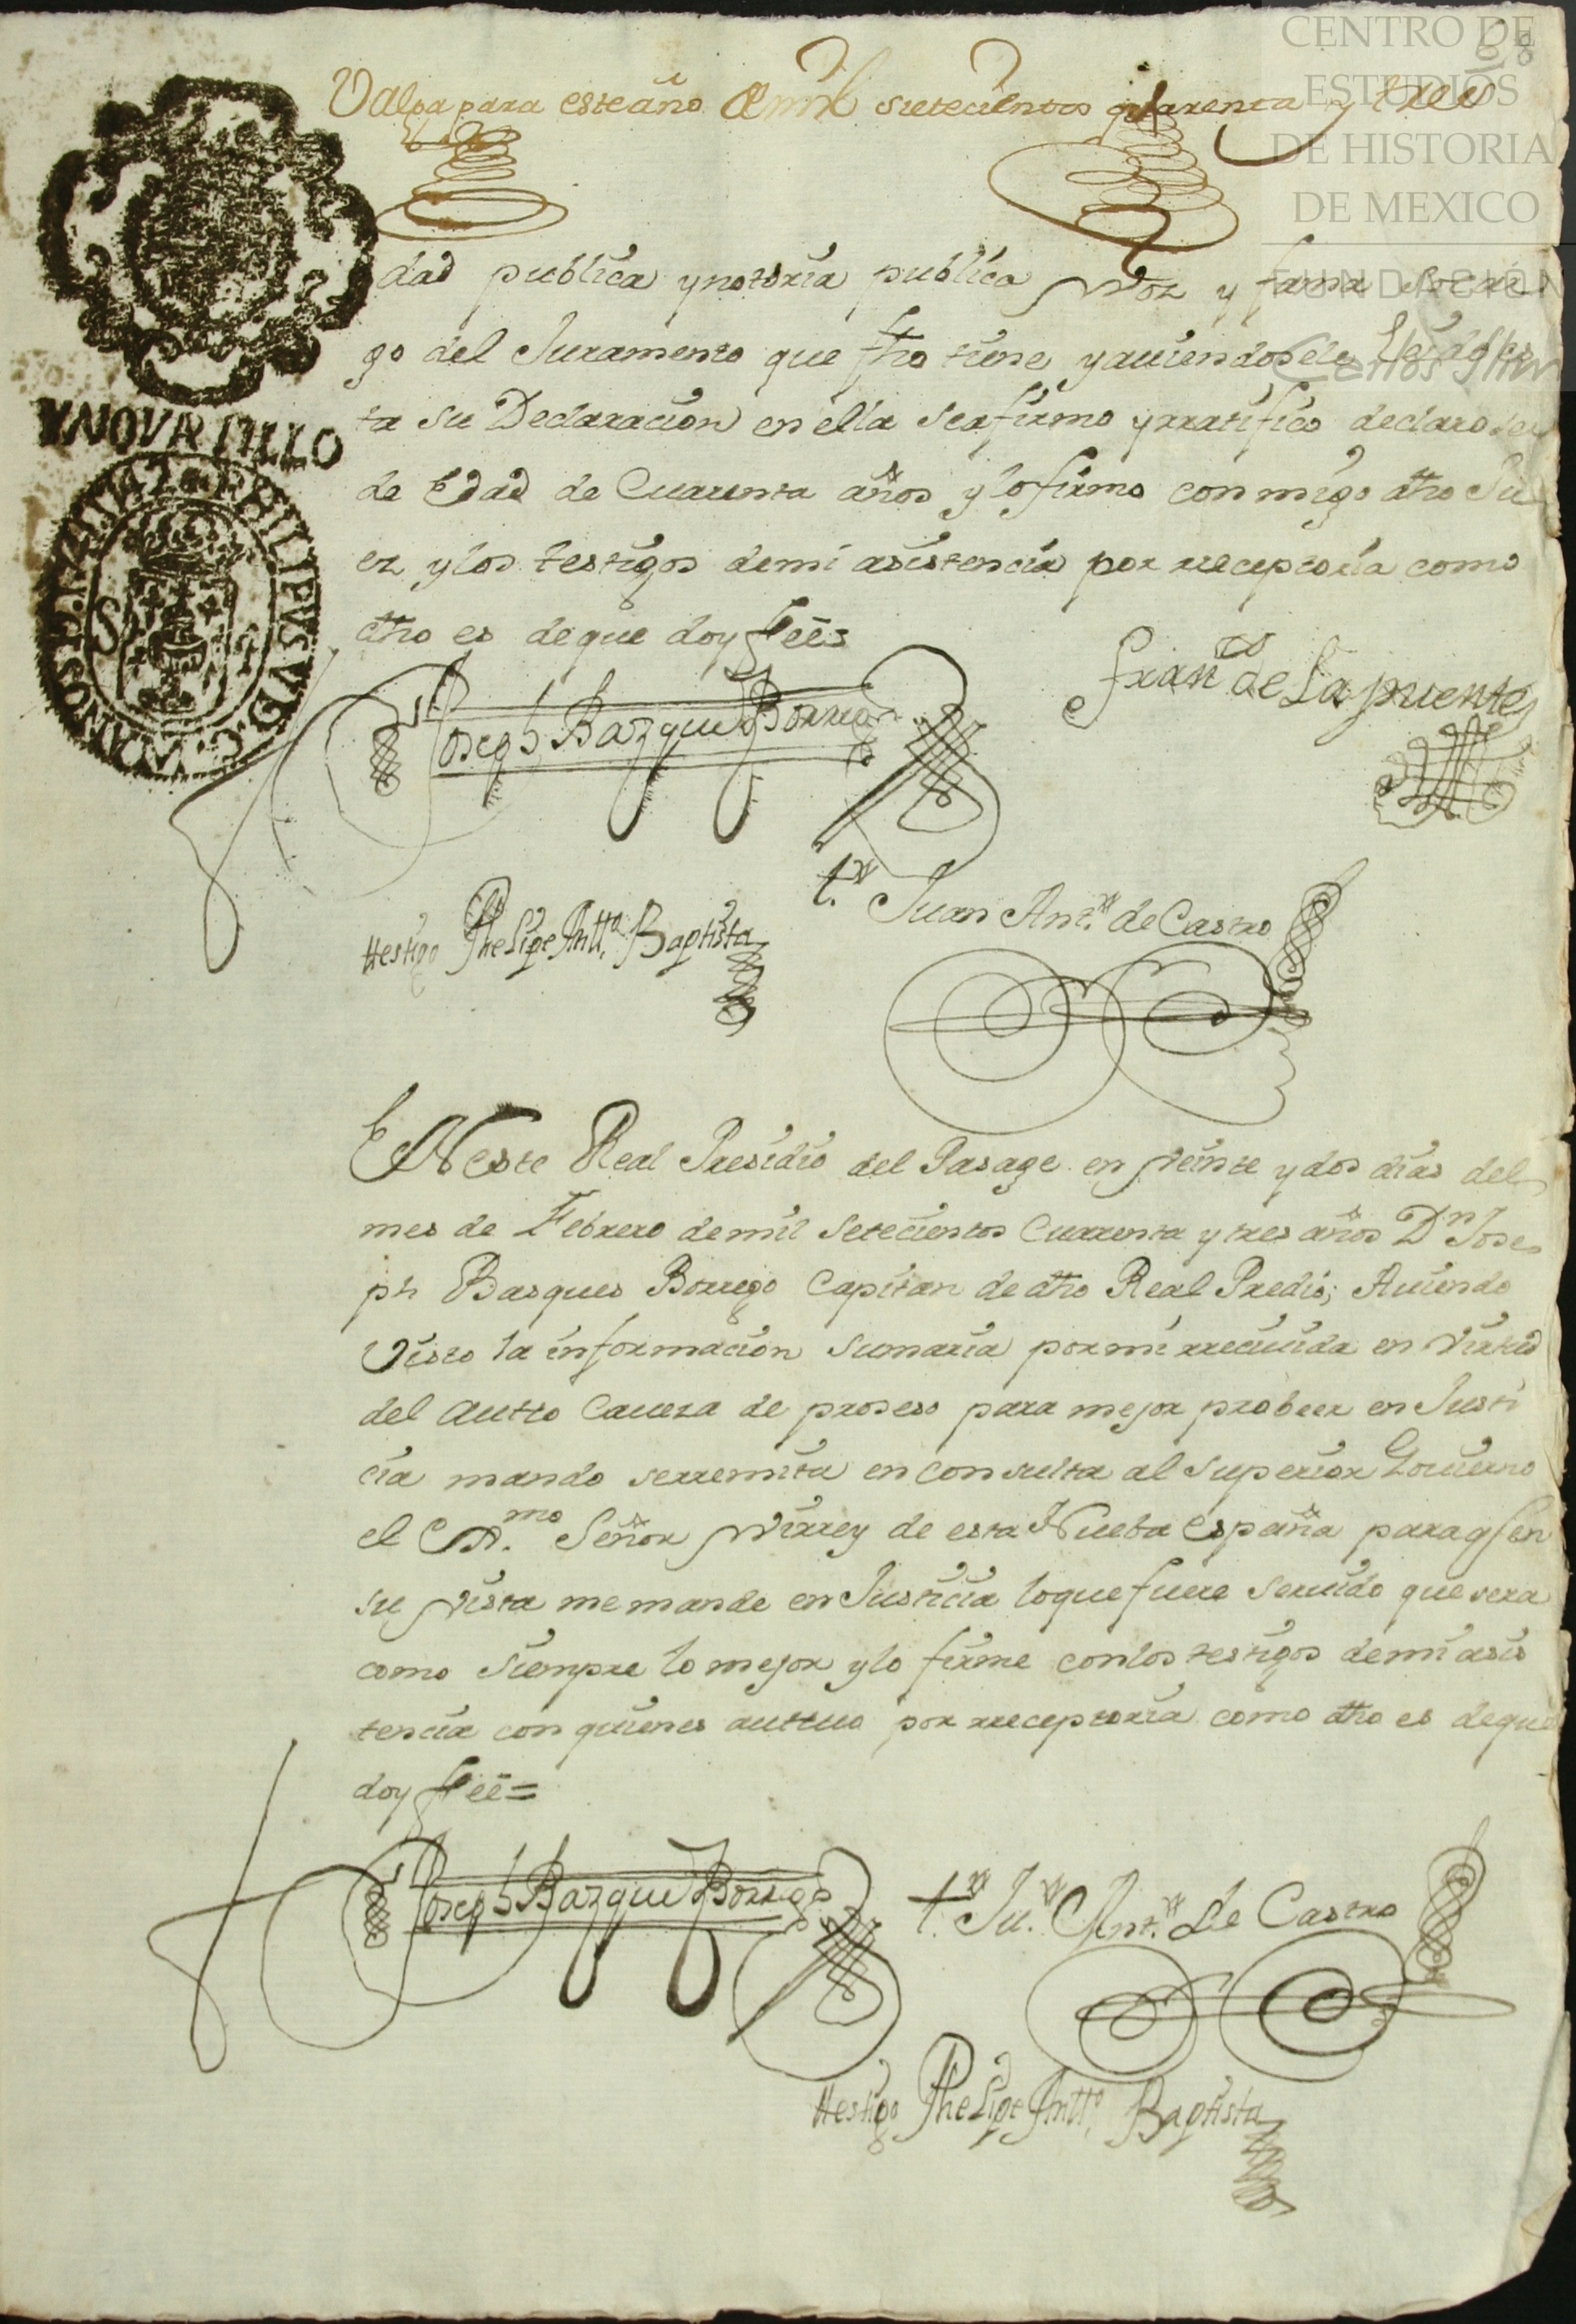 CENTRO DE
ESTUDIOS
DE HISTORIA
DE MEXICO
FUNDACIÓN
Carlos Slim
68
Valga para este año de mil setecientos quarenta y tres
VN QVARTILLO
PHILIPVS V D G
dad publica y notoria publica Voz y fama so car
go del Juramento que fho tiene y auiendosele Leido es
ta su Declaracion en ella se afirmo y rratifico declaro ser
de Edad de Cuarenta años y lo firmo con migo dho Ju
ez y los testigos de mi asistencia por rreceptoria como
dho es de que doy feê
Joseph Bazquez Borrego
Franco de La puente
to Juan Anto de Castro
ttestigo Phelipe Antto Baptista
ENeste Real Presidio del Pasage en veinte y dos dias del
mes de Febrero de mil Setecientos Cuarenta y tres años Dn Jose
ph Basques Borrego Capitan de dho Real Predio; Auiendo
Visto la informacion sumaria por mi rreciuida en Virtud
del Autto Caueza de proseso para mejor probeer en Justi
cia mando serremita en consulta al Superior Gouierno
el Exmo Señor Virrey de esta Nueba españa para q en
su Vista me mande en Justicia lo que fuere seruido que sera
como siempre lo mejor y lo firme con los testigos de mi asis
tencia con quienes auttuo por rreceptoria como dho es de que
doy feê=
Joseph Bazquez Borrego
to Juo Anto de Castro
ttestigo Phelipe Antto Baptista